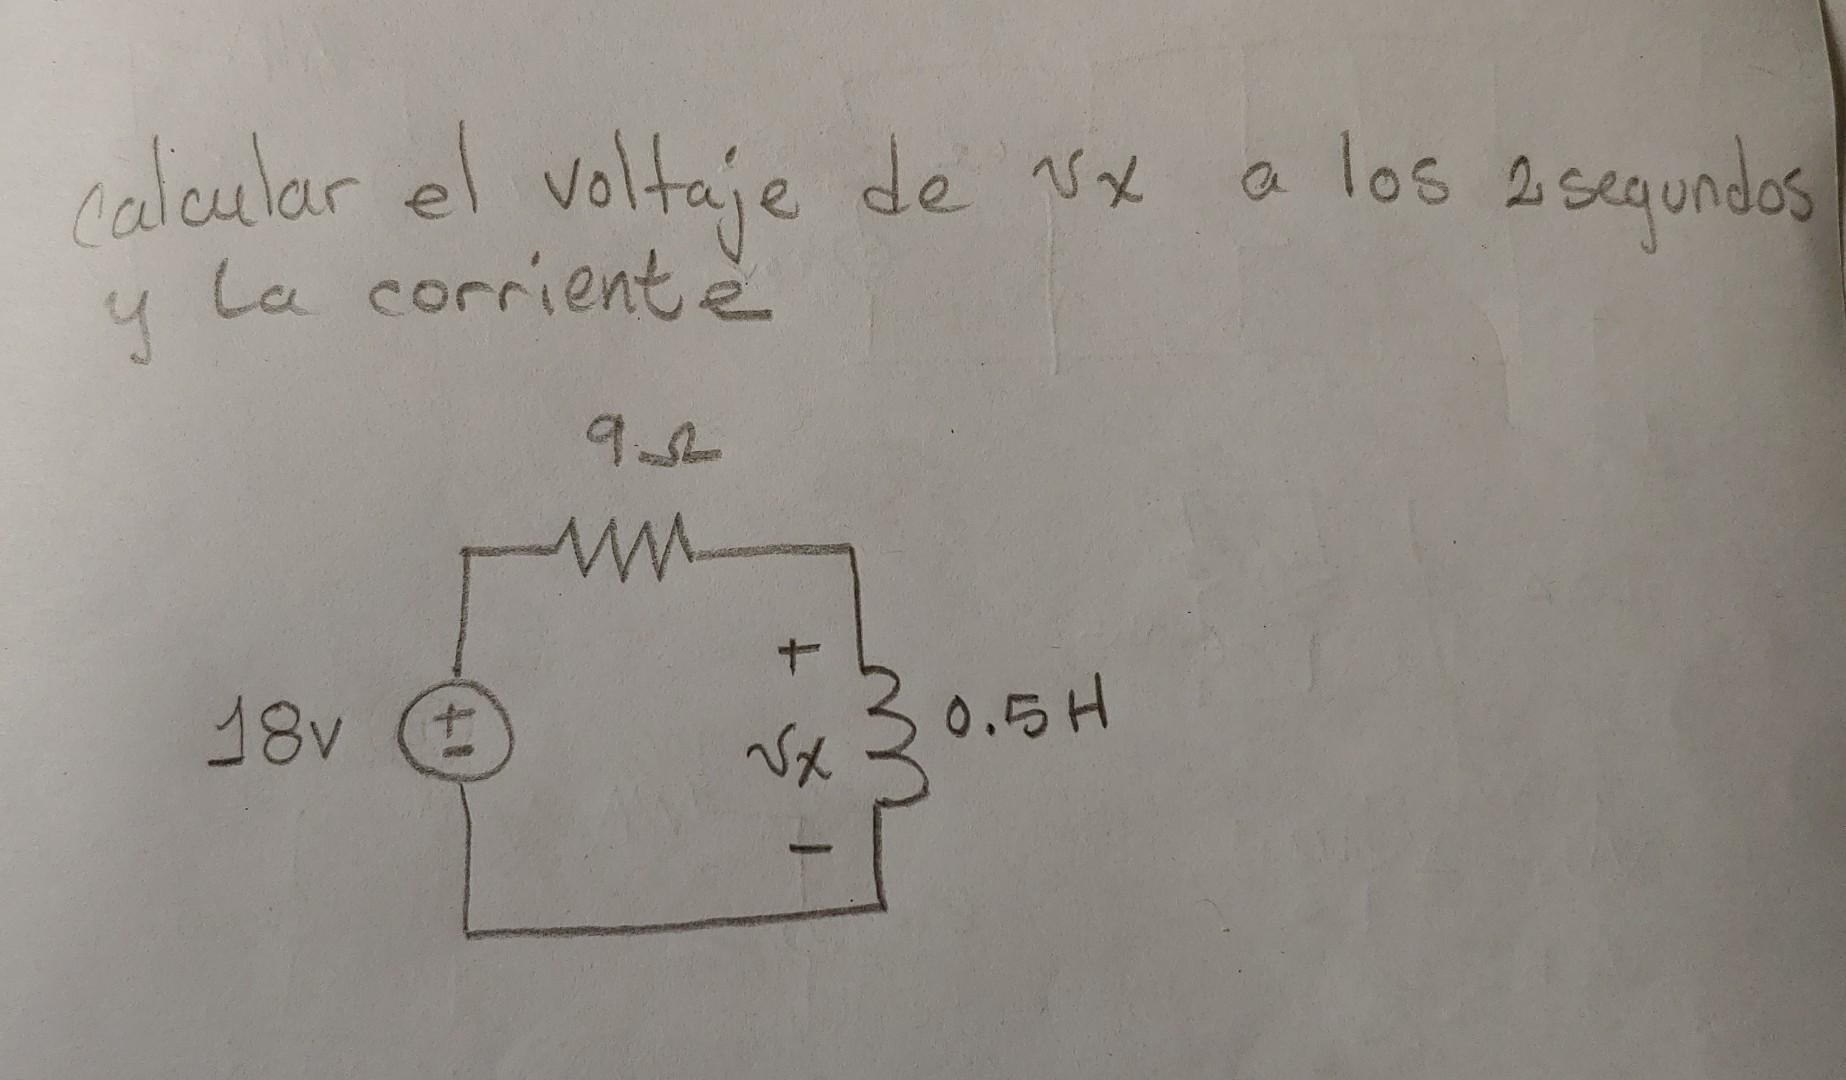 calcular el voltaje de vx a los 2 segundos
y la corriente
9Ω
+
18v
+
-
vx
0.5H
-